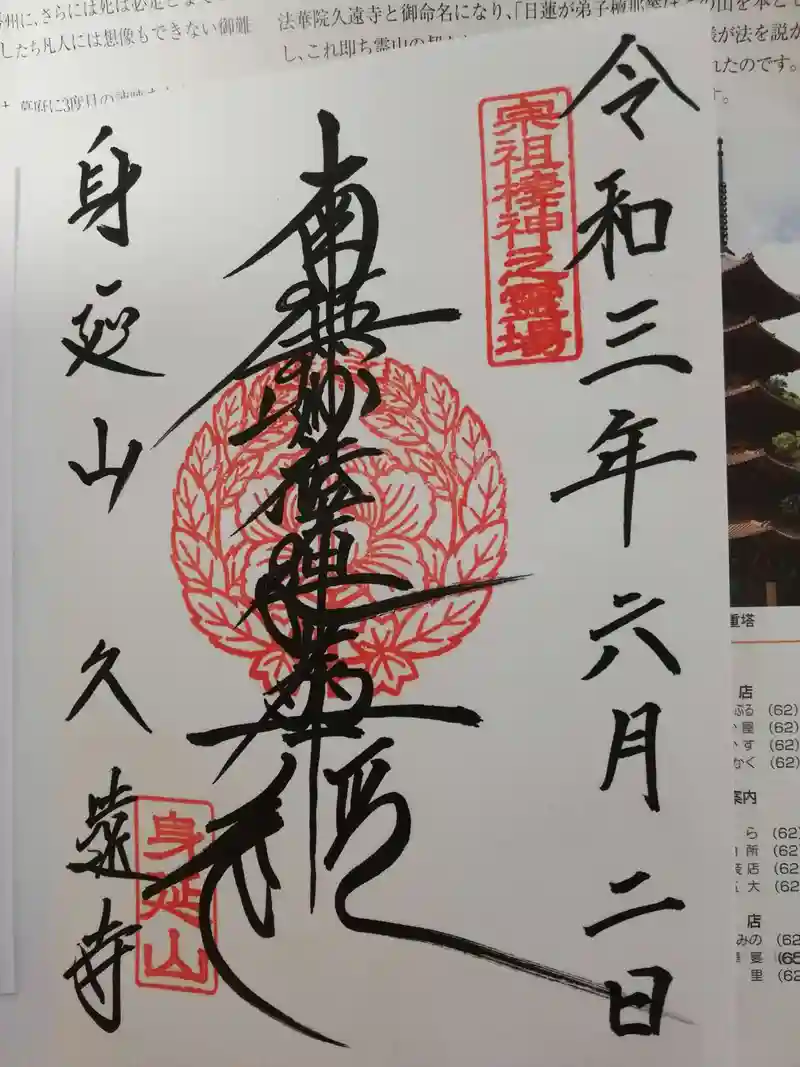 法華院久遠寺と御命名になり、「日蓮が弟子檀那等はこの山を本とし
し、これ即ち霊山の
が法を説か
れたのです。
す。
州に、さらには死は必定とまで
したち凡人には想像もできない御難
令和三年六月二日
宗祖棲神之霊場
南無妙法蓮華経
身延山
久遠寺
身延山
重塔
店
ぶる (62)
屋 (62)
かす (62)
なく (62)
案内
ら (62)
所 (62)
店 (62)
大 (62)
店
みの (62)
宴 (65)
里 (62)